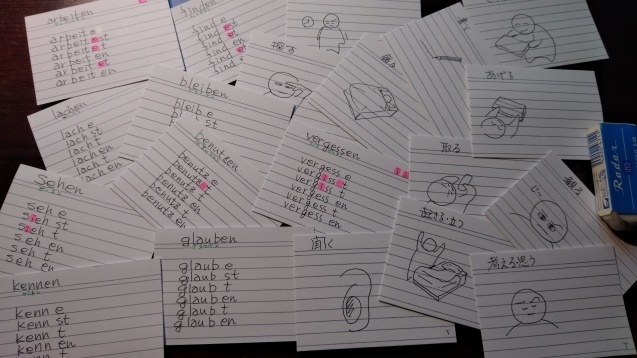 arbeiten
arbeit e
arbeit et
arbeit en
arbeit et
arbeit en
finden
find e
find et
find en
find et
find en
lachen
lach e
lach st
lach t
lach en
lach t
lach en
bleiben
bleib e
st
benutzen
benutz e
benutz t
benutz en
benutz t
benutz en
vergessen
vergess e
vergiss t
vergiss t
vergess en
vergess t
vergess en
sehen
seh e
sieh st
sieh t
seh en
seh t
seh en
glauben
glaub e
glaub st
glaub t
glaub en
glaub t
glaub en
kennen
kenn e
kenn st
kenn t
kenn en
kenn t
あげる
取る
起きる・立つ
聞く
考える・思う
Radar